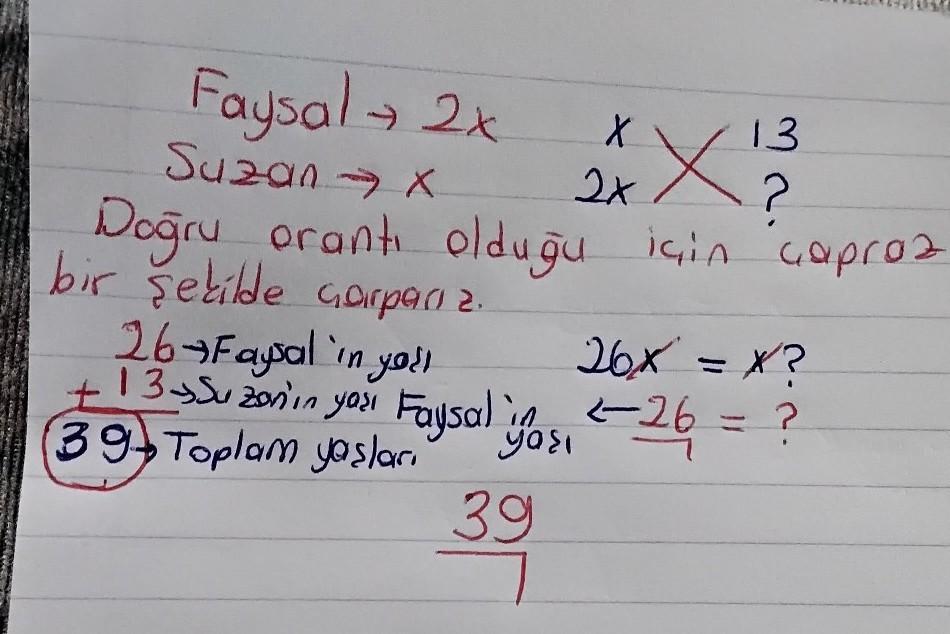 Faysal → 2x
Suzan → x
x 13
2x ?
Doğru orantı olduğu için çapraz
bir şekilde çarparız.
26 → Faysal'ın yaşı
+ 13 → Suzan'ın yaşı
39 → Toplam yaşları
26x = x?
Faysal'ın yaşı ← 26 = ?
39